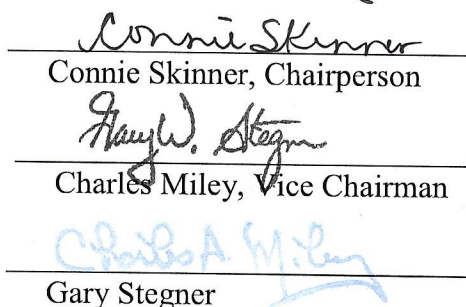 Connie Skinner
Connie Skinner, Chairperson
Gary W. Stegner
Charles Miley, Vice Chairman
Charles A. Miley
Gary Stegner